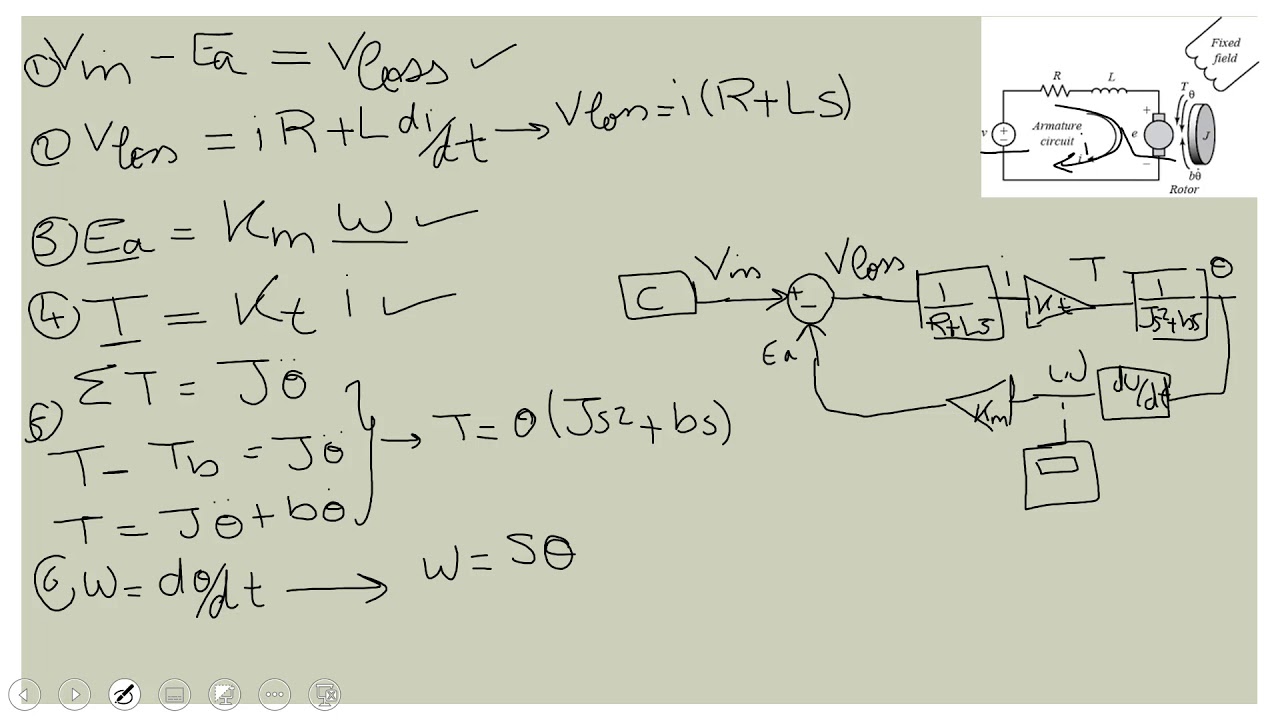 ① Vin - Ea = Vloss ✓
② Vloss = iR + L di/dt → Vloss = i(R+LS)
③ Ea = Km W ✓
④ T = Kt i ✓
⑤ ΣT = Jθ̈
T - Tb = Jθ̈
T = Jθ̈ + bθ̇
→ T = θ(Js² + bs)
⑥ W = dθ/dt → W = Sθ
Fixed
field
R L
T θ
v + − Armature
circuit
i
i
+ e −
J
bθ̇
Rotor
C Vin + − Vloss 1/R+LS i Kt T 1/Js²+bs θ
Ea Km W du/dt